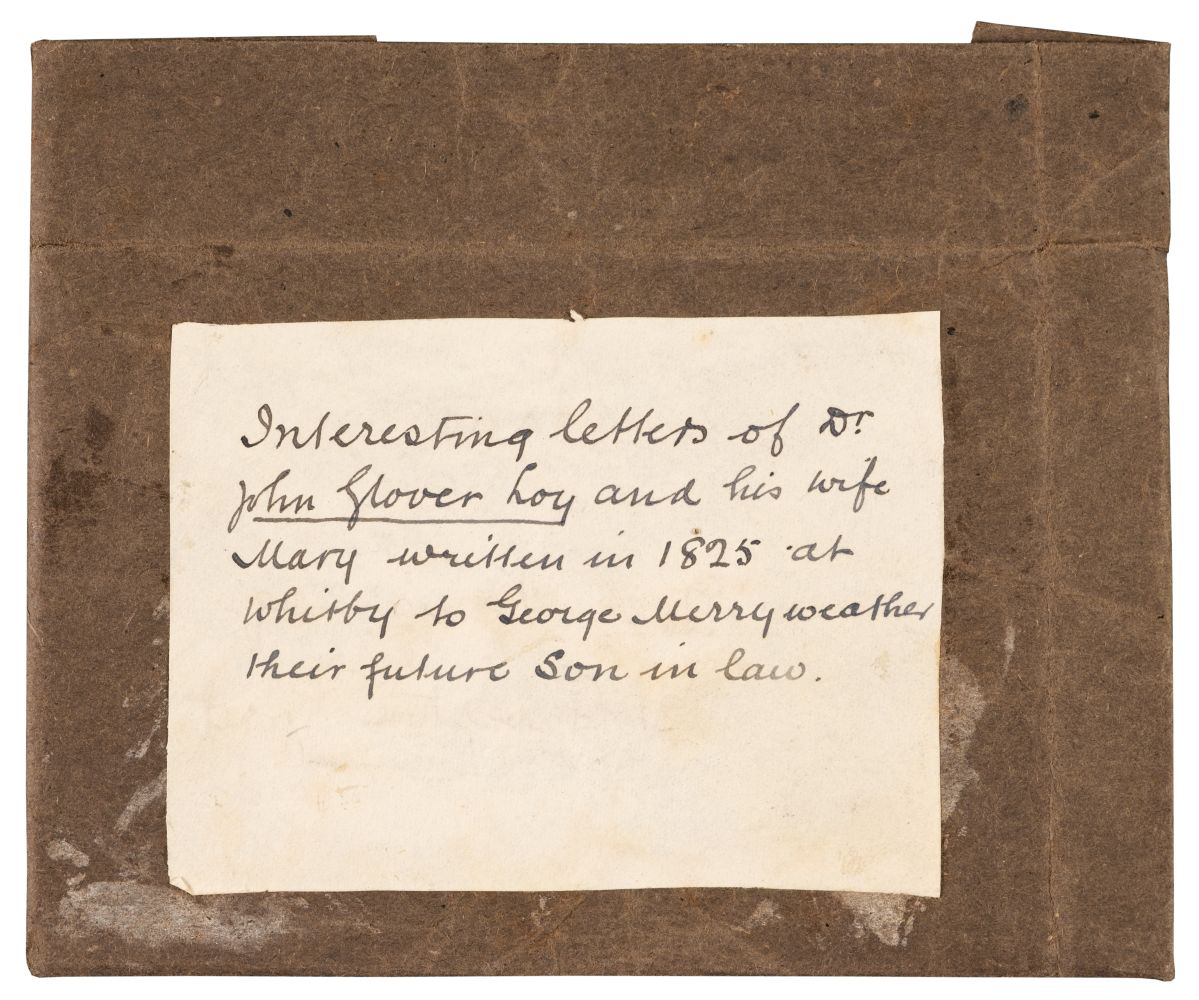 Interesting letters of Dr
John Glover Loy and his wife
Mary written in 1825 at
Whitby to George Merryweather
their future Son in law.